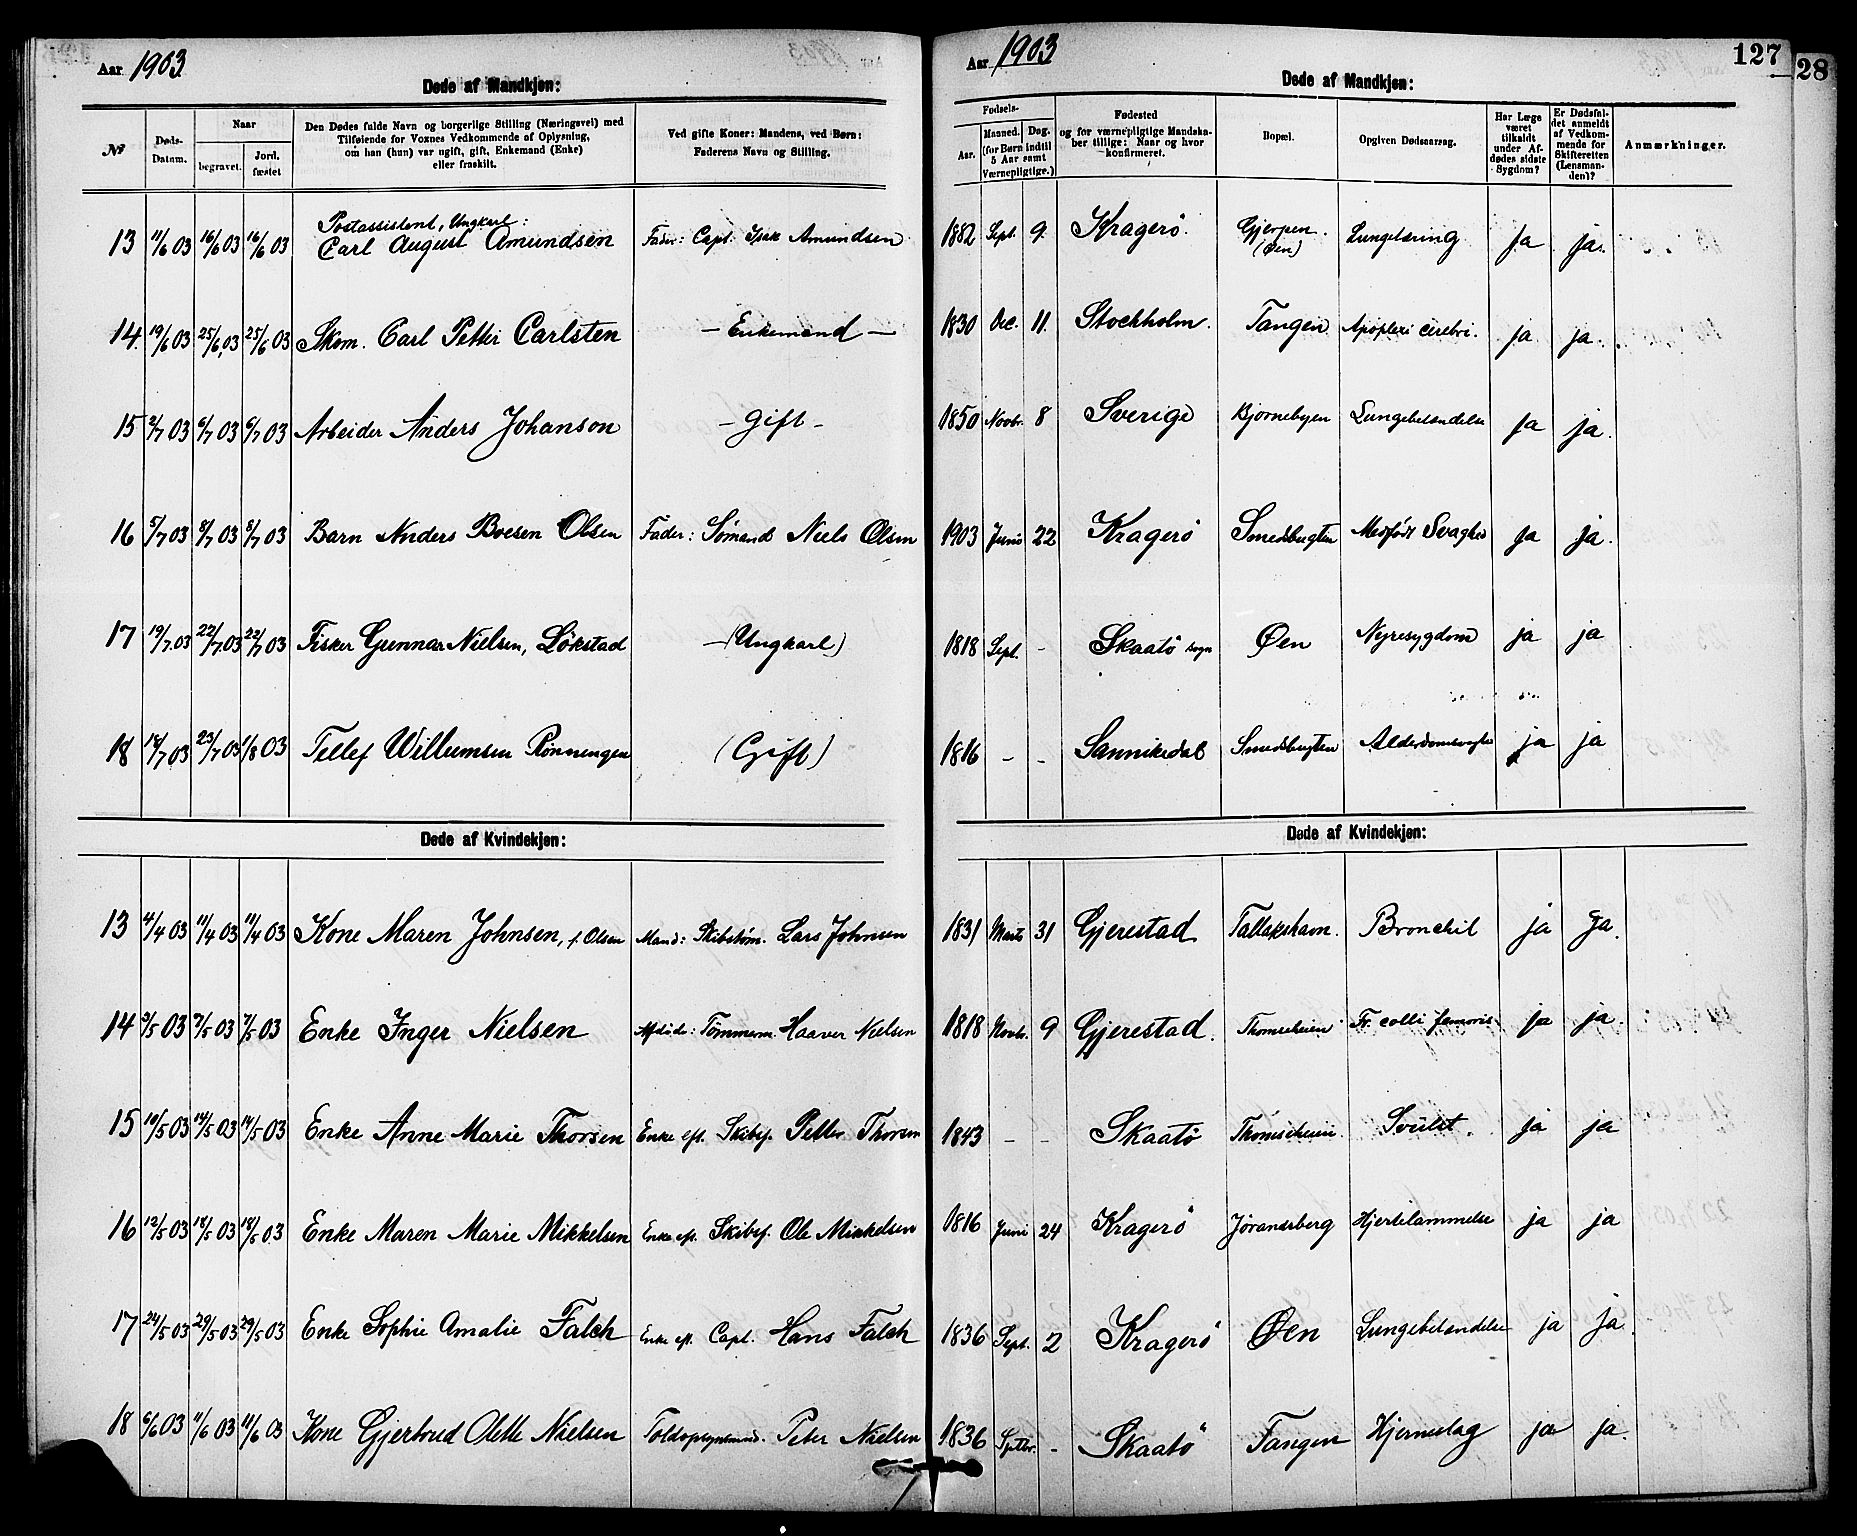 Aar 1903
Døde af Mandkjøn:
№
Døds-Datum.
Naar
begravet.
Jord. fæstet
Den Dødes fulde Navn og borgerlige Stilling (Næringsvei) med
Tilføiende for Voxnes Vedkommende af Oplysning,
om han (hun) var ugift, gift, Enkemand (Enke)
eller fraskilt.
Ved gifte Koner: Mandens, ved Børn:
Faderens Navn og Stilling.
Aar 1903
127
28
Døde af Mandkjøn:
Fødsels-
Aar.
Maaned. Dag.
(for Børn indtil
5 Aar samt
Værnepligtige.)
Fødested
og for værnepligtige Mandska-
ber tillige: Naar og hvor
konfirmeret.
Bopæl.
Opgiven Dødsaarsag.
Har Læge
været
tilkaldt
under Af-
dødes sidste
Sygdom?
Er Dødsfal-
det anmeldt
af Vedkom-
mende for
Skifteretten
(Lensman-
den)?
Anmærkninger.
Postassistent, Ungkarl:
13 11/6 03 16/6 03 16/6 03 Carl August Amundsen Fader: Capt. Isak Amundsen 1882 Sept. 9 Kragerö. Gjerpen. (Øen) Lungetæring Ja ja.
14. 19/6 03 25/6 03 25/6 03 Skom. Carl Petter Carlsten — Enkemand — 1830 Dec. 11. Stockholm. Tangen Apoplexi cerebri. ja ja.
15 2/7 03 6/7 03 6/7 03 Arbeider Anders Johanson - gift - 1850 Novbr. 8 Sverige Bjørnebyen Lungebetændelse Ja ja.
16 5/7 03 8/7 03 8/7 03 Barn Anders Boesen Olsen Fader: Sømand Niels Olsen 1903 Juni 22 Kragerö Smedsbugten Medfødt Svaghed Ja ja.
17 19/7.03 22/7.03 22/7 03 Fisker Gunnar Nielsen, Lökstad (Ungkarl) 1818 Sept. - Skaatö sogn Øen Nyresygdom ja ja
18 18/7 03 23/7 03 1/8 03 Tellef Willumsen Rönningen (Gift) 1816 - - Sannikedal Smedsbugten ja ja
Døde af Kvindekjøn:
Døde af Kvindekjøn:
13 4/4 03 11/4 03 11/4 03 Kone Maren Johnsen, f. Olsen Mand: Skibstøm. Lars Johnsen 1831 Marts 31 Gjerestad Tallakshavn. Bronchit ja Ja.
14 2/5 03 7/5 03 7/5 03 Enke Inger Nielsen Afdøde: Tömmerm. Haaver Nielsen 1818 Novbr. 9 Gjerestad. Thomesheien Fr. colli femoris ja ja
15 10/5 03 14/5 03 14/5 03 Enke Anne Marie Thorsen Enke eft. Skibsf. Petter Thorsen 1843 - - Skaatö Thomesheien. ja ja
16 12/5 03 18/5 03 18/5 03 Enke Maren Marie Mikkelsen Enke eft. Skibsf. Ole Mikkelsen 1816 Juni 24 Kragerö Jøransberg Hjertelammelse ja ja
17 24/5 03 29/5 03 29/5 03 Enke Sophie Amalie Falch Enke eft. Capt. Hans Falch 1836 Sept. 2 Kragerö Øen Lungebetændelse ja ja.
18 6/6 03 11/6 03 11/6 03 Kone Gjertrud Olette Nielsen Toldopsynsmd. Peter Nielsen 1836 Septbr. - Skaatö Tangen Hjerneslag ja ja.